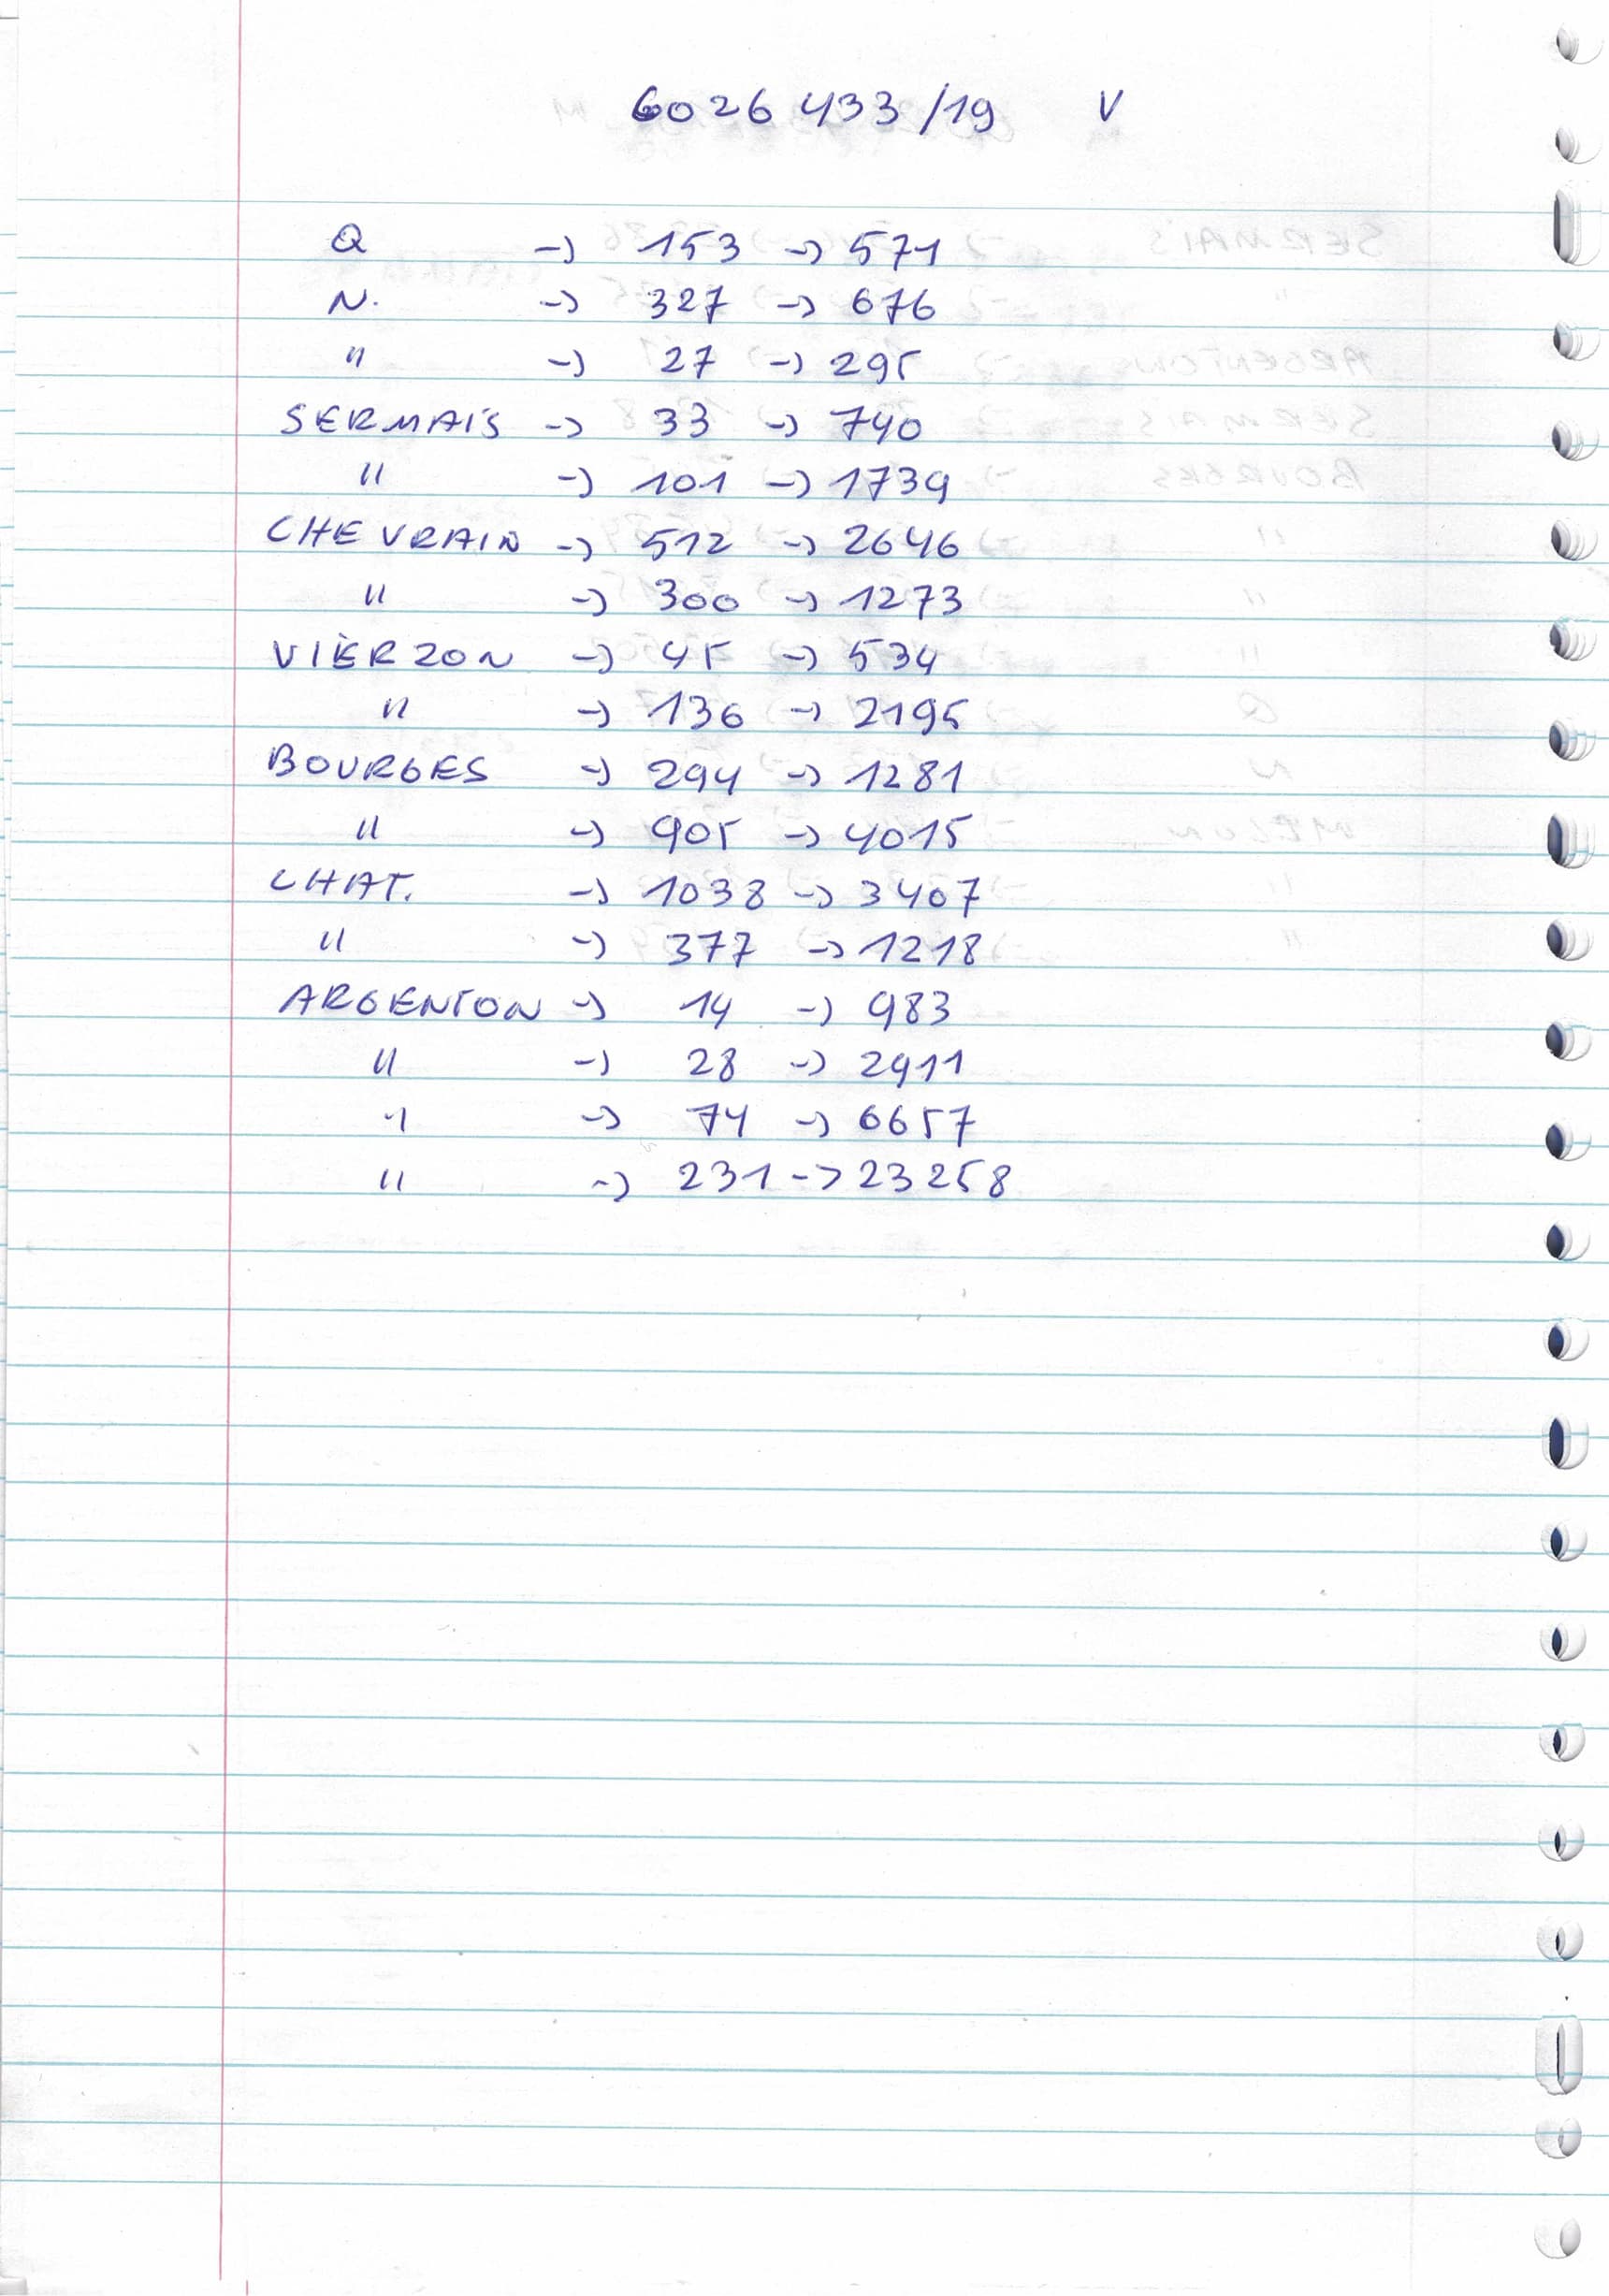 6026433/19 V
Q -> 153 -> 571
N. -> 327 -> 676
" -> 27 -> 295
SERMAIS -> 33 -> 740
" -> 101 -> 1739
CHEVRAIN -> 512 -> 2646
" -> 300 -> 1273
VIERZON -> 45 -> 534
" -> 136 -> 2195
BOURGES -> 294 -> 1281
" -> 905 -> 4015
CHAT. -> 1038 -> 3407
" -> 377 -> 1218
ARGENTON -> 14 -> 983
" -> 28 -> 2911
" -> 74 -> 6657
" -> 231 -> 23258